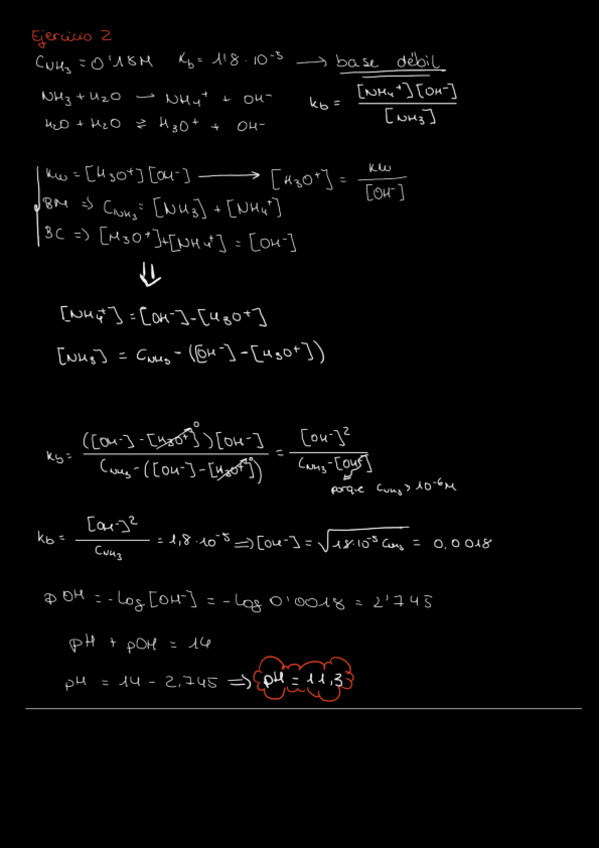 Ejercicio 2
C_NH3 = 0'18M   Kb = 1'8 · 10^-5 → base débil
NH3 + H2O → NH4^+ + OH^-   Kb = [NH4^+][OH^-] / [NH3]
H2O + H2O ⇌ H3O^+ + OH^-
Kw = [H3O^+][OH^-] → [H3O^+] = Kw / [OH^-]
BM => C_NH3 = [NH3] + [NH4^+]
BC => [H3O^+] + [NH4^+] = [OH^-]
⇓
[NH4^+] = [OH^-] - [H3O^+]
[NH3] = C_NH3 - ([OH^-] - [H3O^+])
Kb = ([OH^-] - [H3O^+]^0)[OH^-] / C_NH3 - ([OH^-] - [H3O^+]^0) = [OH^-]^2 / C_NH3 - [OH^-]
porque C_NH3 > 10^-6 M
Kb = [OH^-]^2 / C_NH3 = 1,8 · 10^-5 => [OH^-] = √1'8·10^-5 C_NH3 = 0,0018
pOH = -log[OH^-] = -log 0'0018 = 2'745
pH + pOH = 14
pH = 14 - 2,745 => pH = 11,3